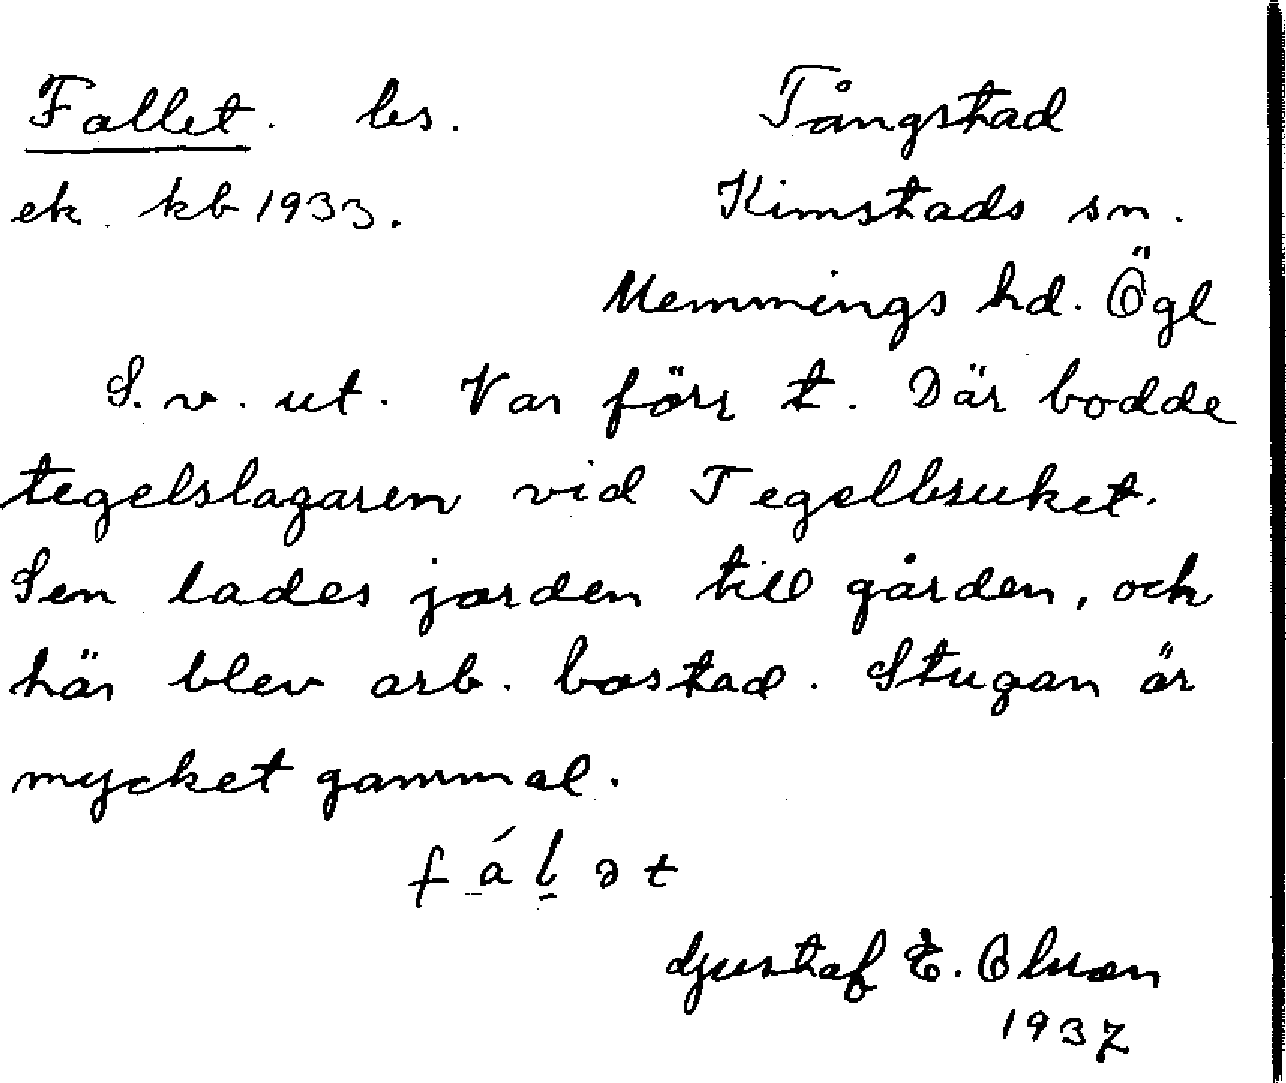 Fallet. ls. Tångstad
ek. kb 1933. Kimstads sn.
Memmings hd. Ögl
S. v. ut. Var förr t. Där bodde
tegelslagaren vid Tegelbruket.
Sen lades jorden till gården, och
här blev arb. bostad. Stugan är
mycket gammal.
fál̠ət
Gustaf E. Olsson
1937